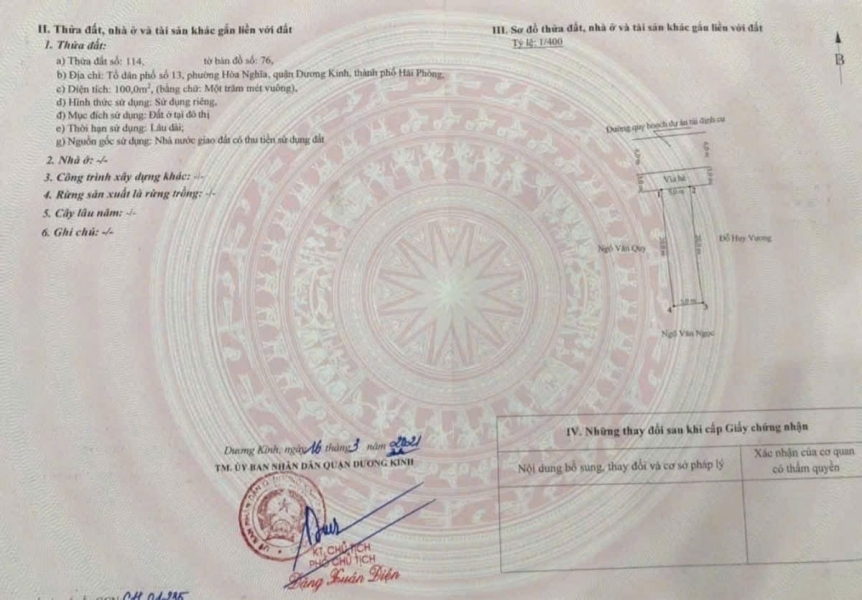 II. Thửa đất, nhà ở và tài sản khác gắn liền với đất
1. Thửa đất:
a) Thửa đất số: 114, tờ bản đồ số: 76,
b) Địa chỉ: Tổ dân phố số 13, phường Hòa Nghĩa, quận Dương Kinh, thành phố Hải Phòng,
c) Diện tích: 100,0m², (bằng chữ: Một trăm mét vuông),
d) Hình thức sử dụng: Sử dụng riêng,
đ) Mục đích sử dụng: Đất ở tại đô thị
e) Thời hạn sử dụng: Lâu dài;
g) Nguồn gốc sử dụng: Nhà nước giao đất có thu tiền sử dụng đất
2. Nhà ở: -/-
3. Công trình xây dựng khác: -/-
4. Rừng sản xuất là rừng trồng: -/-
5. Cây lâu năm: -/-
6. Ghi chú: -/-
III. Sơ đồ thửa đất, nhà ở và tài sản khác gắn liền với đất
Tỷ lệ: 1/400
B
Đường quy hoạch dự án tái định cư
Vỉa hè
1 5,0 m 2
Ngô Văn Quy
Đỗ Huy Vương
20,0 m
20,0 m
4 5,0 m 3
Ngô Văn Ngọc
Dương Kinh, ngày 16 tháng 3 năm 2021
TM. ỦY BAN NHÂN DÂN QUẬN DƯƠNG KINH
KT. CHỦ TỊCH
PHÓ CHỦ TỊCH
Đặng Xuân Điện
IV. Những thay đổi sau khi cấp Giấy chứng nhận
Nội dung bổ sung, thay đổi và cơ sở pháp lý
Xác nhận của cơ quan
có thẩm quyền